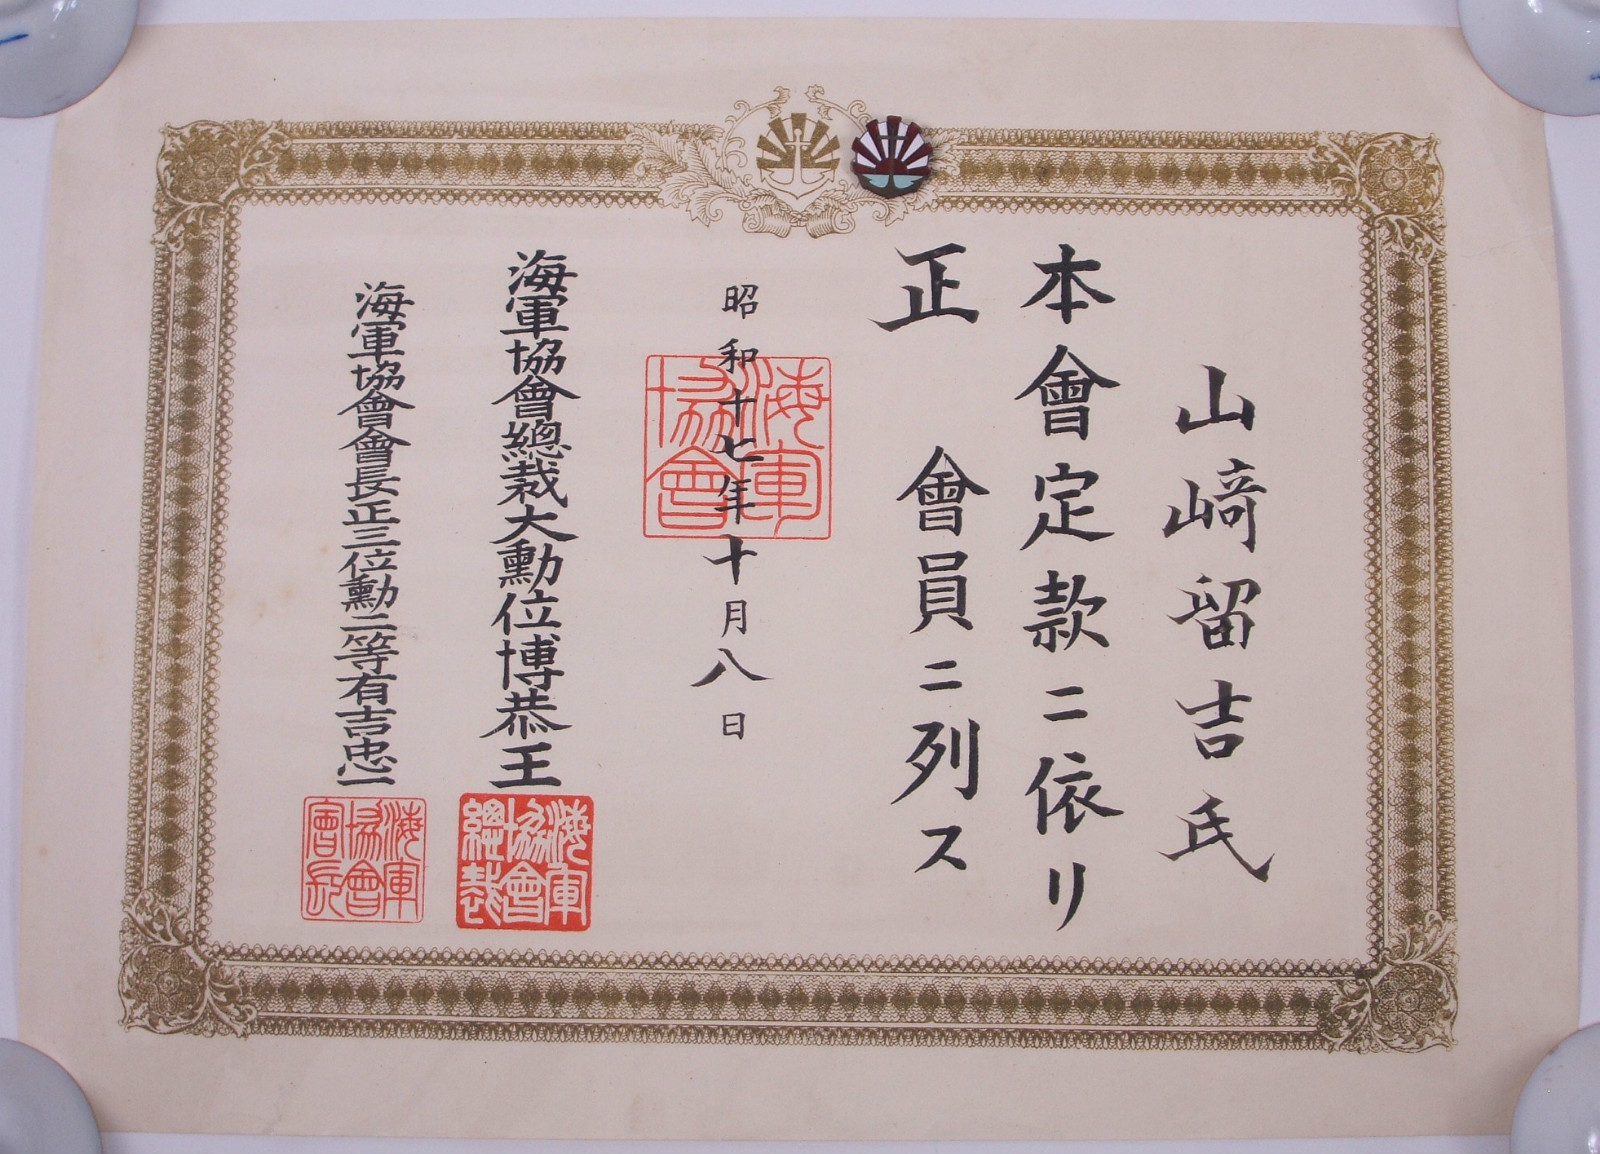 山﨑留吉氏
本會定款ニ依リ
正會員ニ列ス
昭和十七年十月八日
海軍協會
海軍協會總裁大勳位博恭王
海軍協會總裁
海軍協會會長正三位勳二等有吉忠一
海軍協會會長